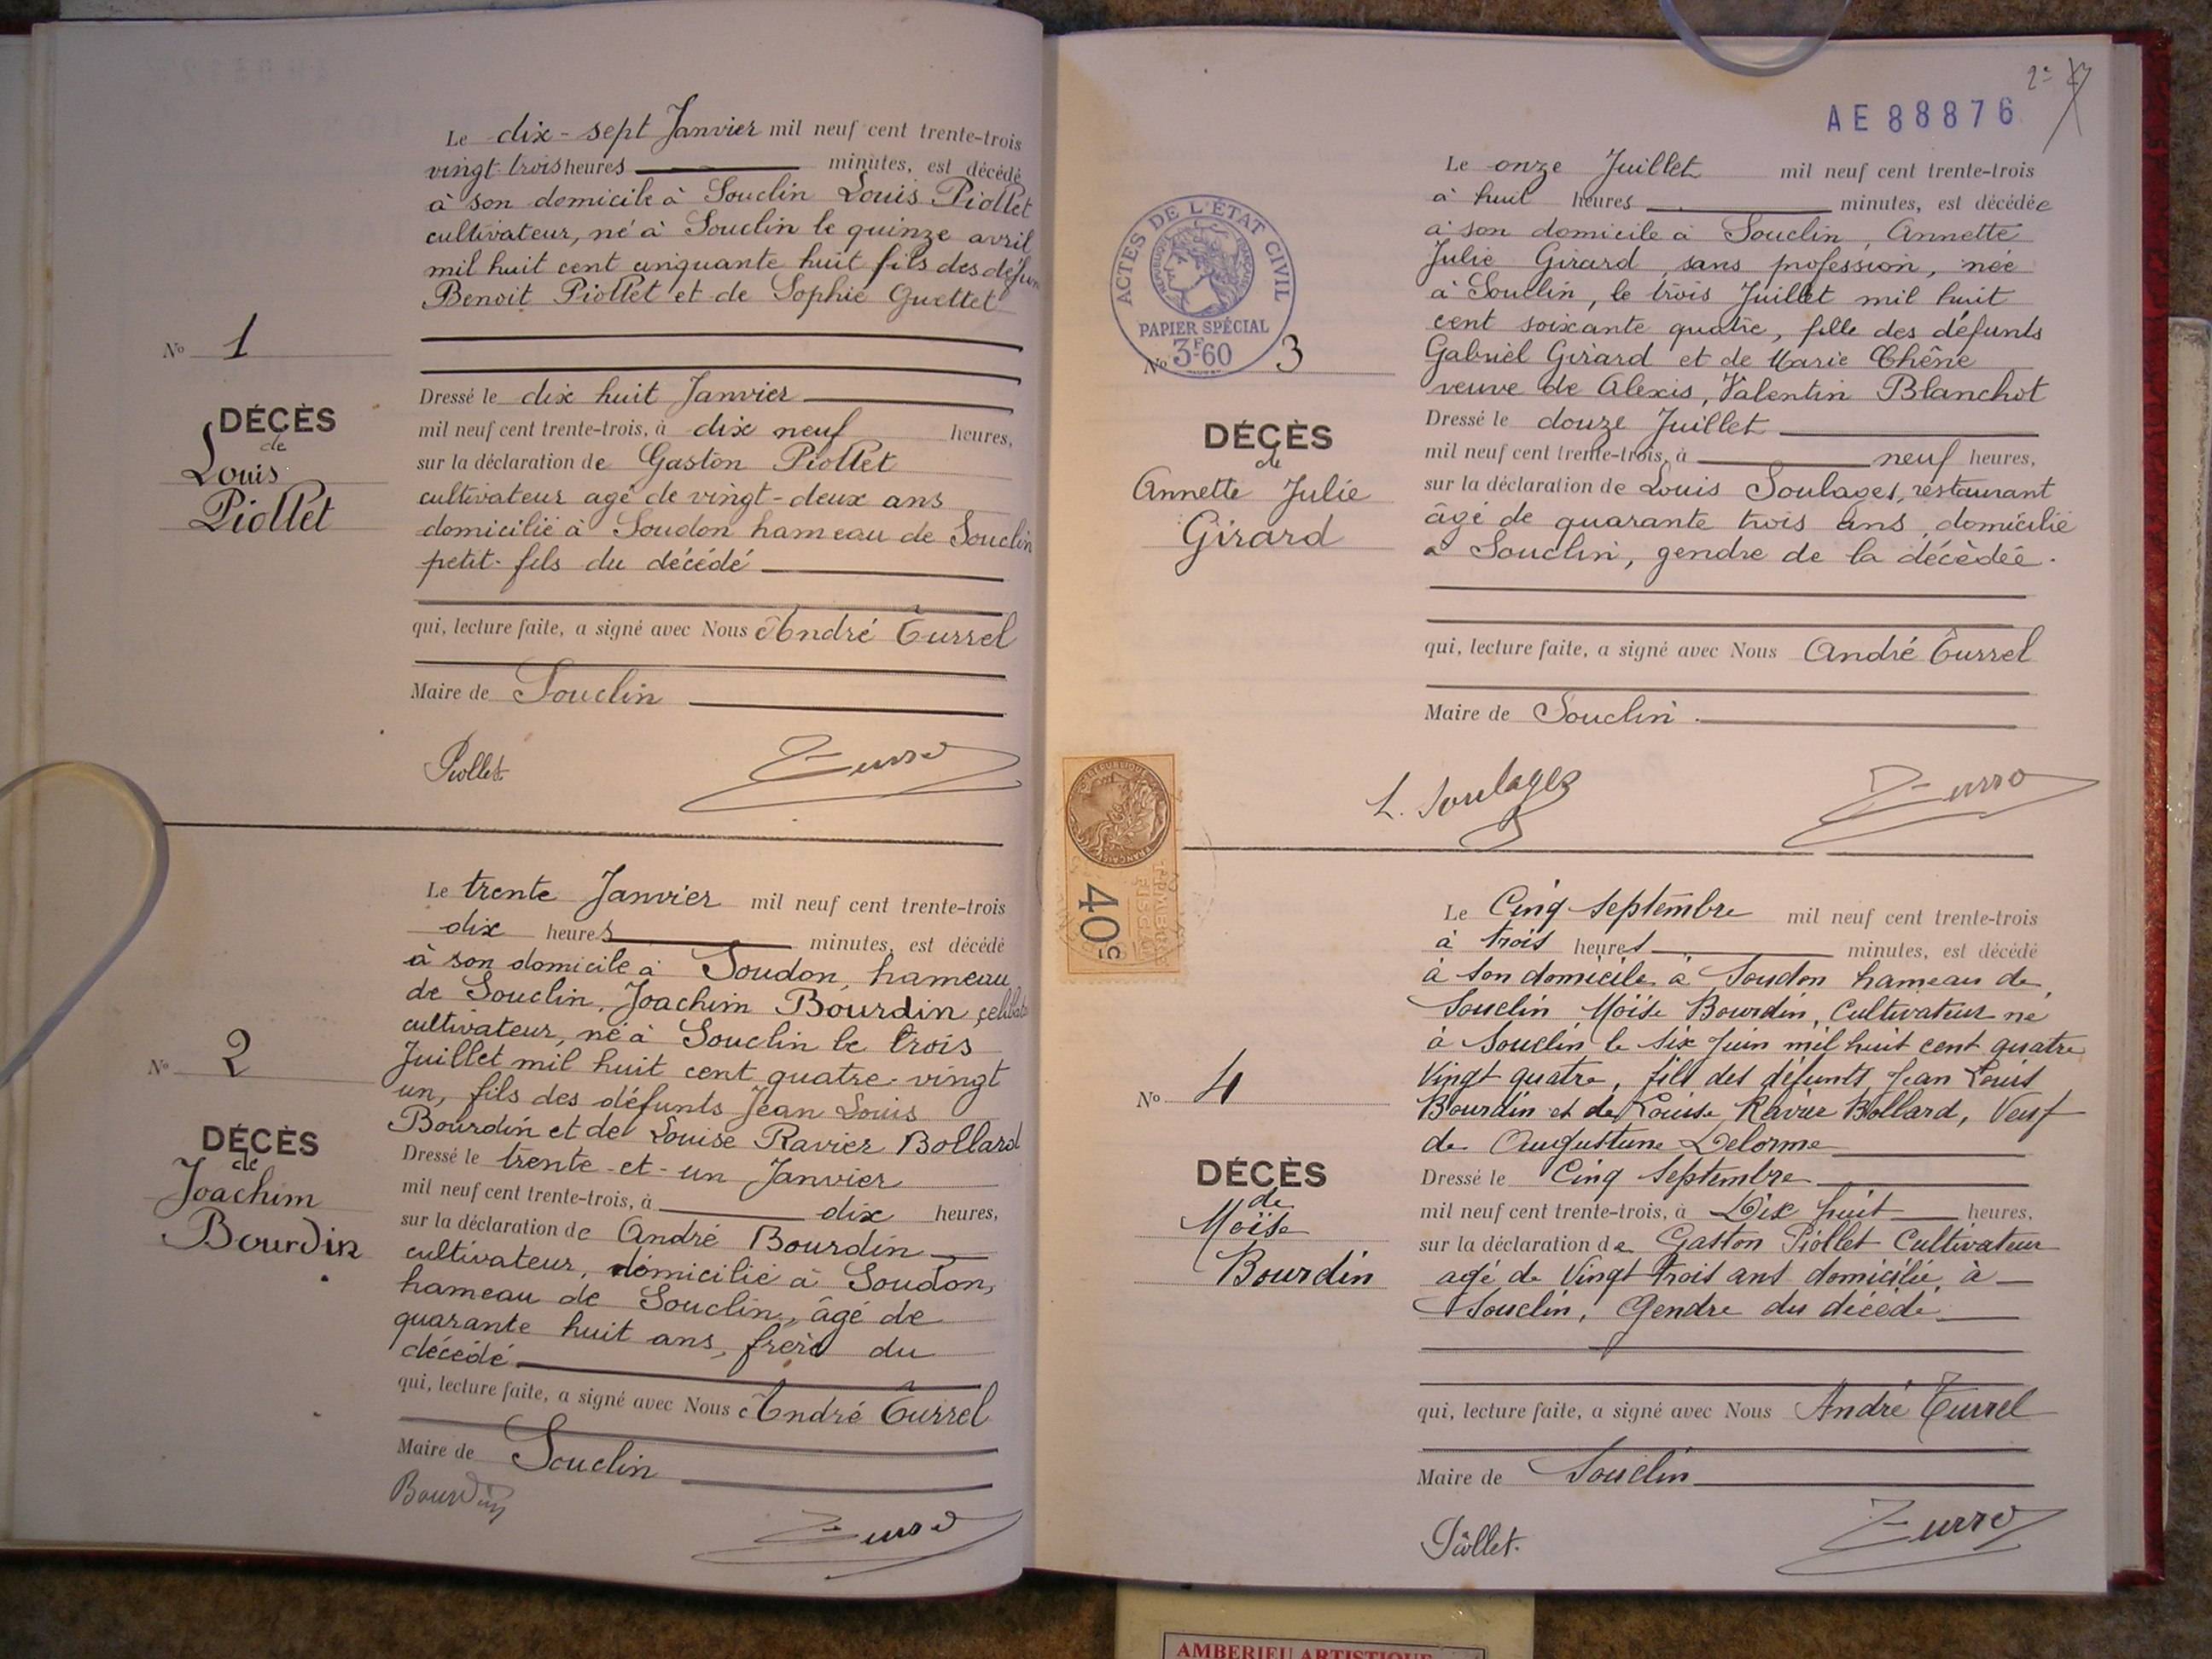 Le dix-sept Janvier mil neuf cent trente-trois
vingt trois heures minutes, est décédé
à son domicile à Souclin Louis Piollet
cultivateur, né à Souclin le quinze avril
mil huit cent cinquante huit fils des défun
Benoit Piollet et de Sophie Guettet
No 1
DÉCÈS
de
Louis
Piollet
Dressé le dix huit Janvier
mil neuf cent trente-trois, à dix neuf heures,
sur la déclaration de Gaston Piollet
cultivateur agé de vingt-deux ans
domicilié à Soudon hameau de Souclin
petit-fils du décédé
qui, lecture faite, a signé avec Nous André Turrel
Maire de Souclin
Piollet
Le trente Janvier mil neuf cent trente-trois
dix heures minutes, est décédé
à son domicile à Soudon, hameau
de Souclin, Joachim Bourdin célibat
cultivateur, né à Souclin le trois
Juillet mil huit cent quatre-vingt
un, fils des défunts Jean Louis
Bourdin et de Louise Ravier Bollard
No 2
DÉCÈS
de
Joachim
Bourdin
Dressé le trente-et-un Janvier
mil neuf cent trente-trois, à dix heures,
sur la déclaration de André Bourdin
cultivateur, domicilié à Soudon,
hameau de Souclin, âgé de
quarante huit ans, frère du
décédé
qui, lecture faite, a signé avec Nous André Turrel
Maire de Souclin
Bourdin
2e
AE 88876
Le onze Juillet mil neuf cent trente-trois
à huit heures minutes, est décédée
à son domicile à Souclin, Annette
Julie Girard, sans profession, née
à Souclin, le trois Juillet mil huit
cent soixante quatre, fille des défunts
Gabriel Girard et de Marie Chêne
veuve de Alexis, Valentin Blanchot
ACTES DE L'ÉTAT CIVIL
PAPIER SPÉCIAL
3F60
No 3
DÉCÈS
de
Annette Julie
Girard
Dressé le douze Juillet
mil neuf cent trente-trois, à neuf heures,
sur la déclaration de Louis Soulages, restaurant
âgé de quarante trois ans, domicilié
à Souclin, gendre de la décédée.
qui, lecture faite, a signé avec Nous André Turrel
Maire de Souclin.
L. Soulages
40c
TIMBRE
FISCAL
Le Cinq Septembre mil neuf cent trente-trois
à trois heures minutes, est décédé
à son domicile à Soudon hameau de
Souclin Moïse Bourdin, Cultivateur né
à Souclin le six Juin mil huit cent quatre
Vingt quatre, fils des défunts Jean Louis
Bourdin et de Louise Ravier Bollard, Veuf
de Augustine Delorme
No 4
DÉCÈS
de
Moïse
Bourdin
Dressé le Cinq Septembre
mil neuf cent trente-trois, à Dix huit heures,
sur la déclaration de Gaston Piollet Cultivateur
agé de Vingt trois ans domicilié à
Souclin, Gendre du décédé
qui, lecture faite, a signé avec Nous André Turrel
Maire de Souclin
Piollet.
AMBERIEU ARTISTIQUE